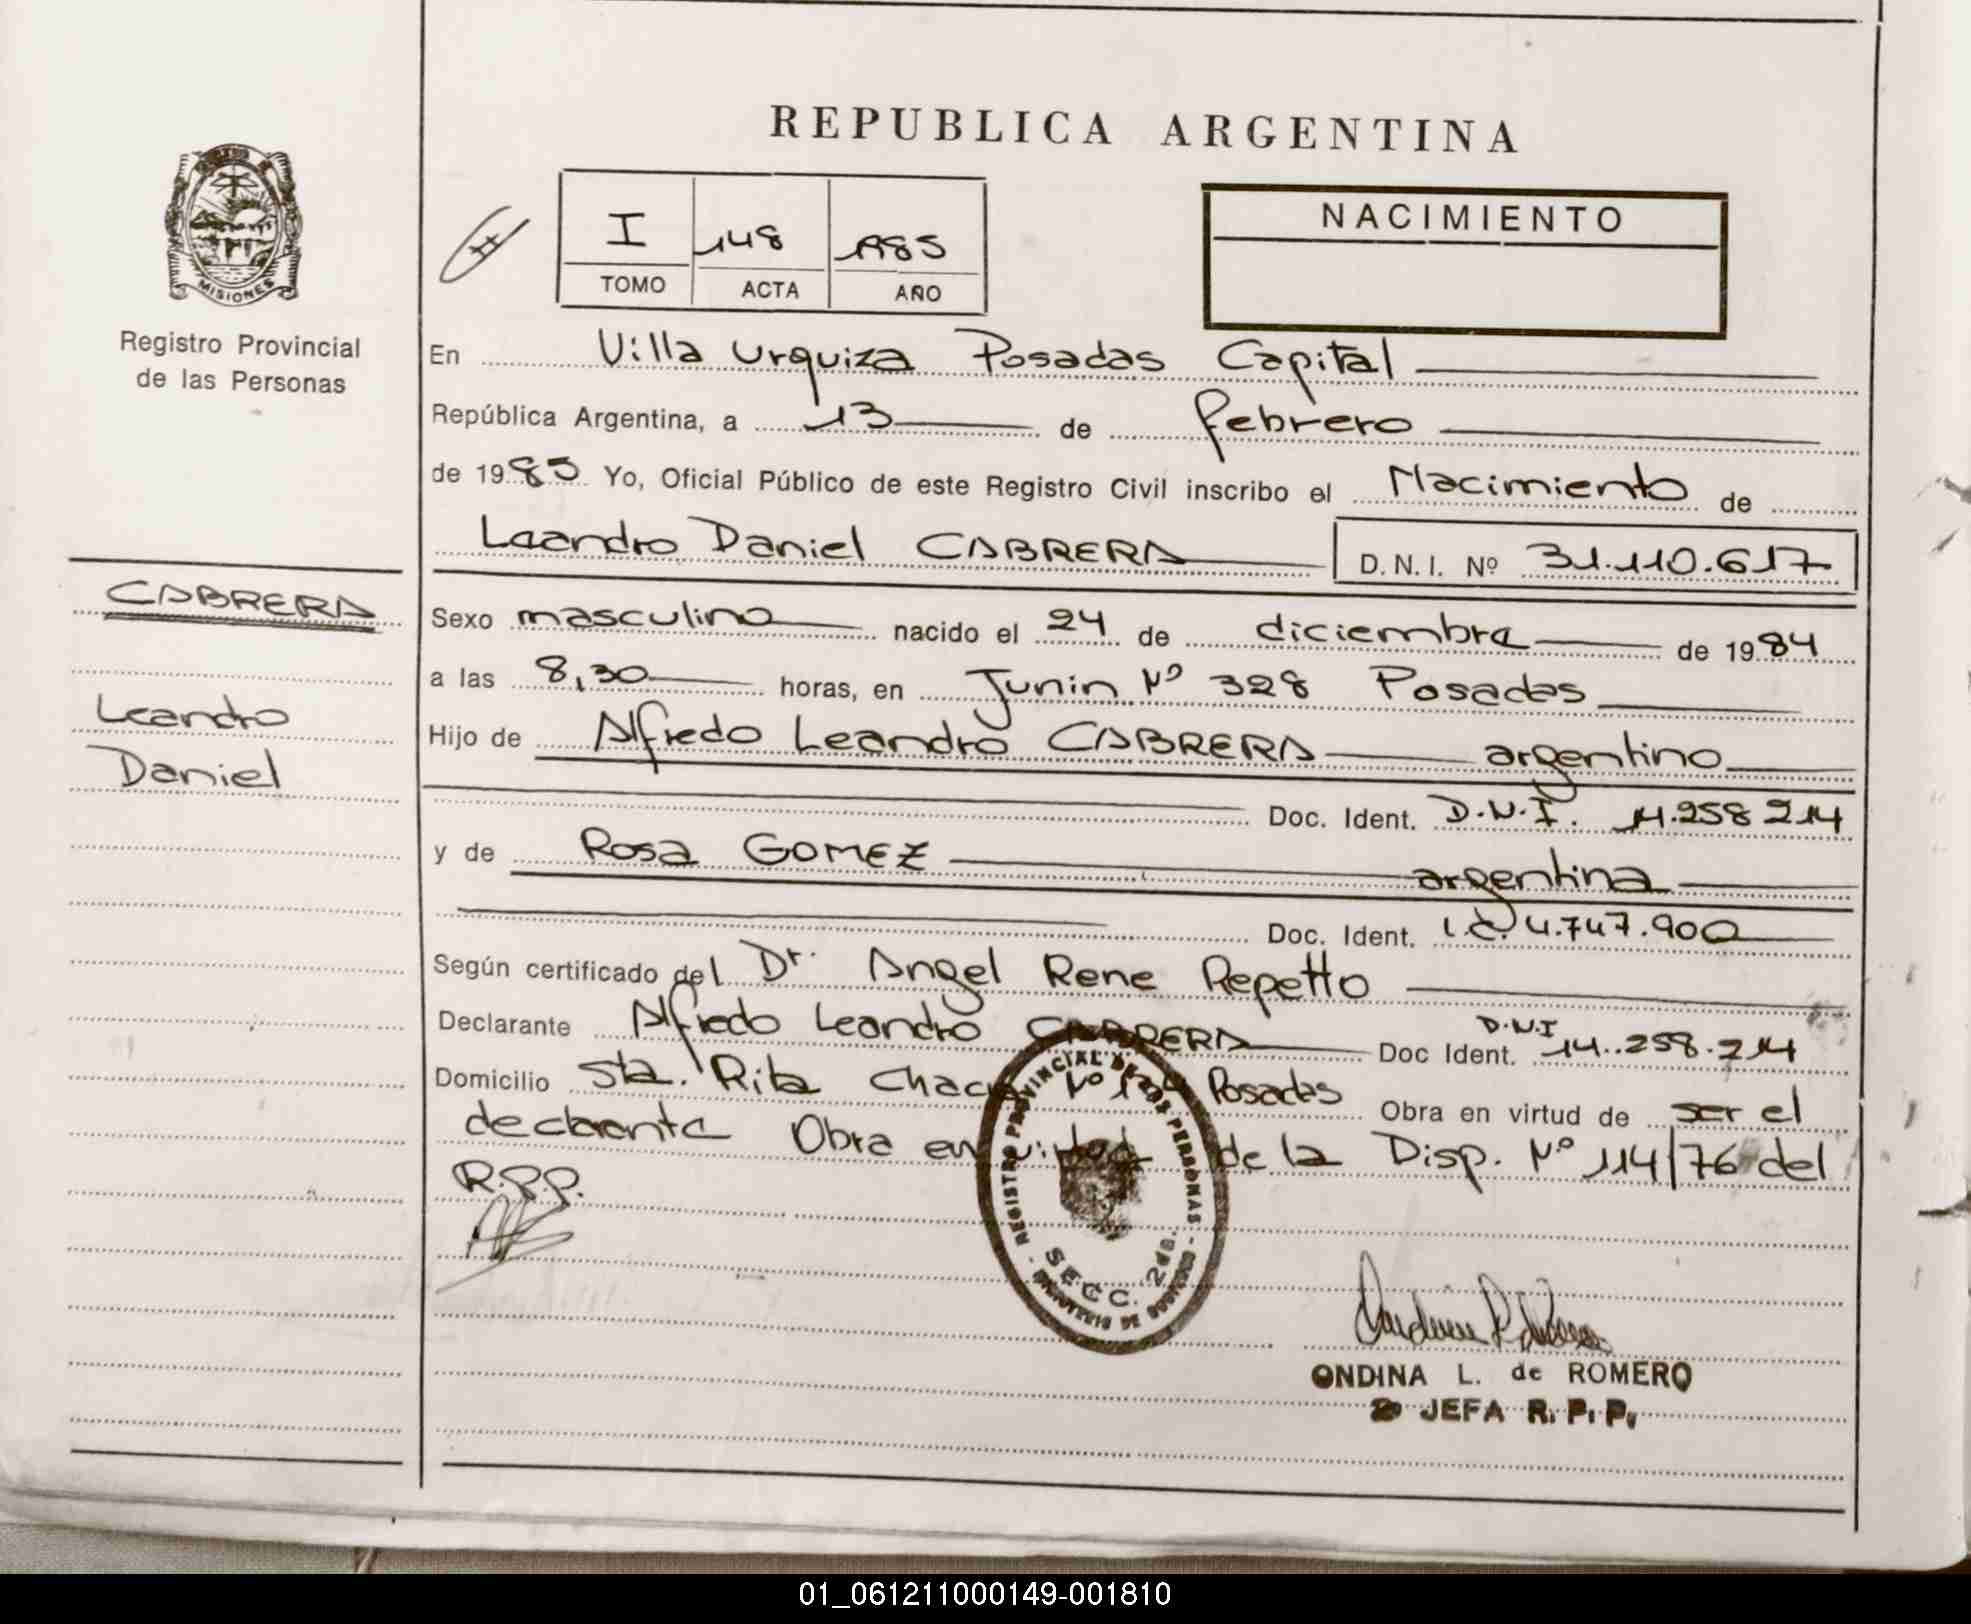 REPUBLICA ARGENTINA
MISIONES
Registro Provincial
de las Personas
I 148 1985
TOMO ACTA AÑO
NACIMIENTO
En Villa Urquiza Posadas Capital
República Argentina, a 13 de febrero
de 1985 Yo, Oficial Público de este Registro Civil inscribo el Nacimiento de
Leandro Daniel CABRERA D.N.I. Nº 31.110.617
CABRERA
Leandro
Daniel
Sexo masculino nacido el 24 de diciembre de 1984
a las 8,30 horas, en Junin Nº 328 Posadas
Hijo de Alfredo Leandro CABRERA argentino
Doc. Ident. D.N.I. 14.258 214
y de Rosa GOMEZ argentina
Doc. Ident. L.C. 4.747.900
Según certificado del Dr. Angel Rene Repetto
Declarante Alfredo Leandro CABRERA Doc Ident. D.N.I 14.258.214
Domicilio Sta. Rita Nº Posadas Obra en virtud de ser el
declarante Obra en virtud de la Disp. Nº 114/76 del
R.P.P.
REGISTRO PROVINCIAL DE LAS PERSONAS
SECC. 2da.
MINISTERIO DE GOBIERNO
ONDINA L. de ROMERO
JEFA R. P. P.
01_061211000149-001810